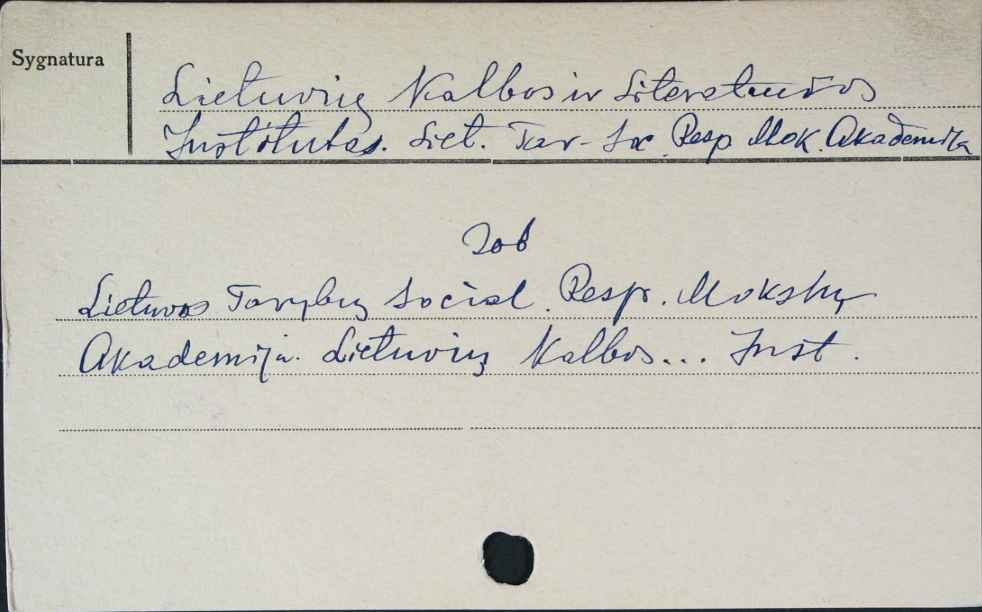 Sygnatura
Lietuvių Kalbos ir Literatūros
Institutas. Liet. Tar. Soc. Resp. Mok. Akademija
Zob
Lietuvos Tarybų Social. Resp. Mokslų
Akademija. Lietuvių Kalbos... Inst.